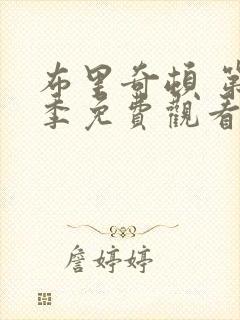 布里奇頓 第
季免費觀看
詹婷婷